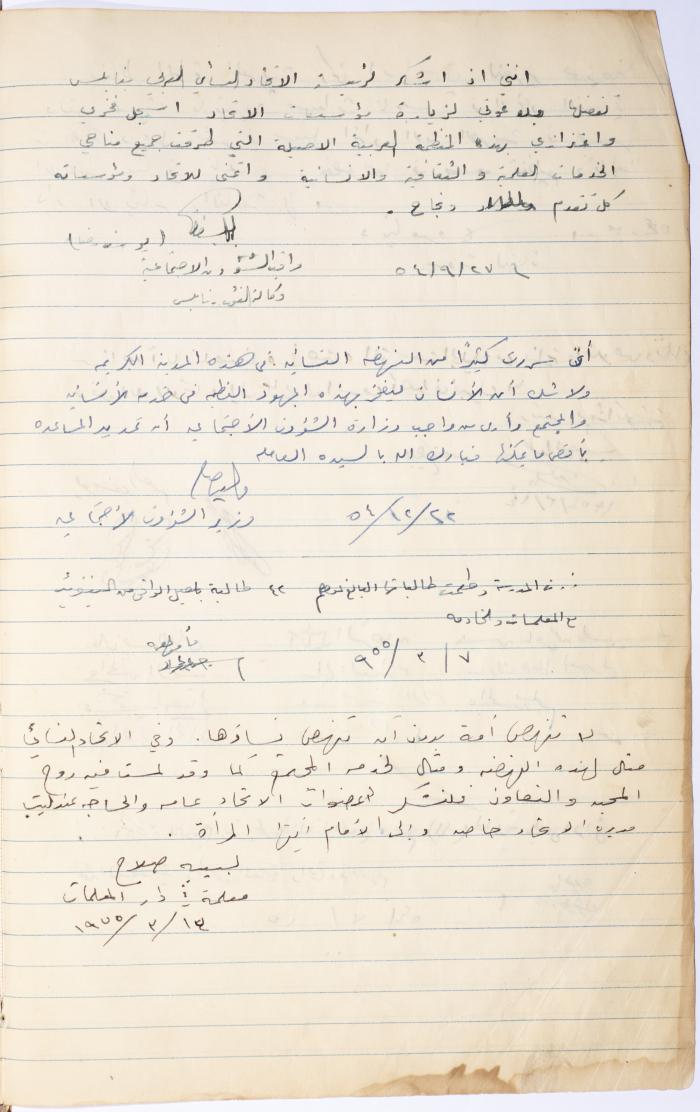 انني اذ اشكر لرئيسة الاتحاد النسائي العربي بنابلس
تفضلها بدعوتي لزيارة مؤسسات الاتحاد اسجل فخري
واعتزازي بهذه المنظمة العربية الاصيلة التي طرقت جميع مناحي
الخدمات العلمية و الثقافية والانسانية واتمنى للاتحاد ومؤسساته
كل تقدم ونجاح .
مراقب الشؤون الاجتماعية
وكالة الغوث بنابلس
٥٤/٩/٢٧
أتى سروري كثيرًا من النهضه النسائيه في هذه المدينة الكريمه
ولا شك أن الأنسان ليفخر بهذه الجهود العظيمه في خدمه الأنسانيه
والمجتمع وأرى من واجب وزارة الشؤون الأجتماعيه أن تمد يد المساعده
بأقصى ما يمكنها فبارك الله بالسيده العامله
وزير الشؤون الأجتماعيه
٥٤/١٢/٢٢
زرت المدرسة وطعمت طالباتها البالغ عددهم ٤٢ طالبة بالمصل الواقي من التيفوئيد
مع المعلمات والخادمه
٩٥٥/٣/٧
لا تنهض أمة بدون أن تنهض نساؤها. وفي الاتحاد النسائي
مثال لهذه النهضه ومثال لخدمه المجتمع كما وقد لمست فيه روح
المحبه والتعاون فلنشكر لعضوات الاتحاد عامه والحاجه عندليب
مديرة الاتحاد خاصه وإلى الأمام أيتها المرأة .
لبيبه صلاح
معلمة في دار المعلمات
١٩٥٥/٣/١٣